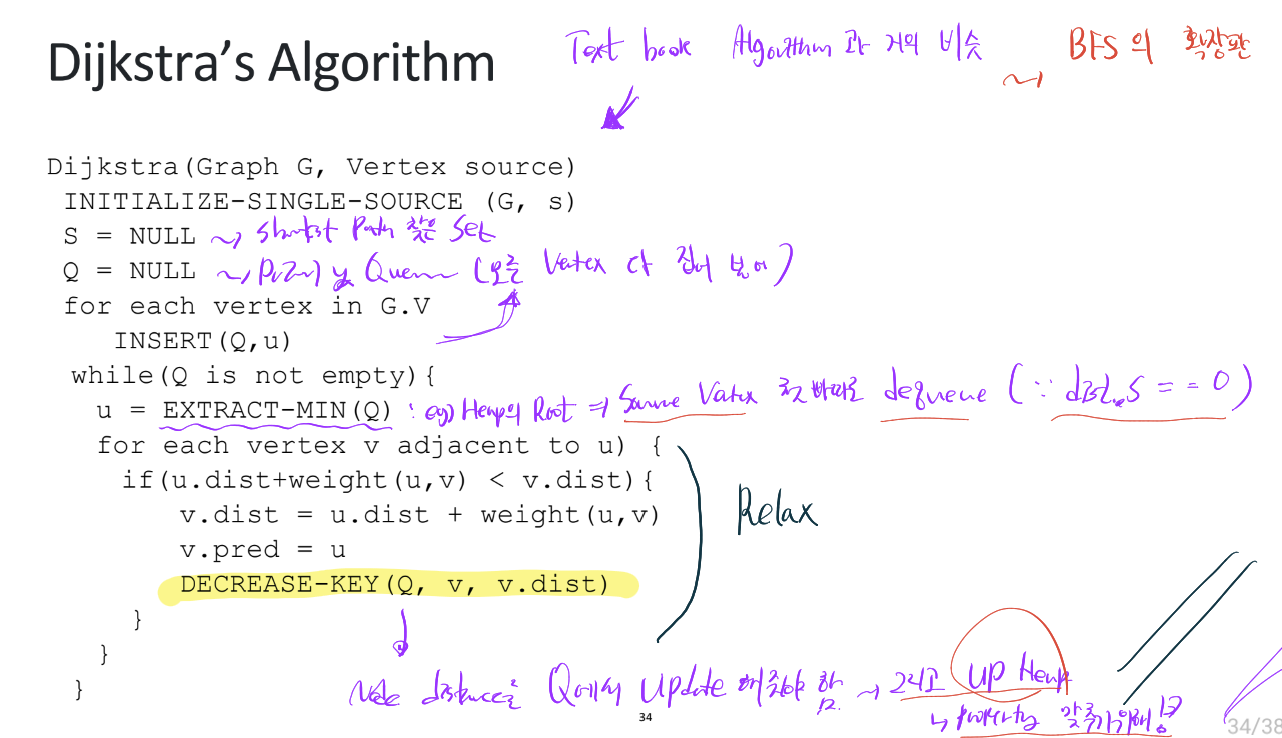 Dijkstra’s Algorithm
Text book Algorithm과 거의 비슷
BFS의 확장판
Dijkstra(Graph G, Vertex source)
INITIALIZE-SINGLE-SOURCE (G, s)
S = NULL ~> Shortest Path 찾은 Set
Q = NULL (모든 Vertex 다 집어 넣어)
for each vertex in G.V
INSERT(Q,u)
while(Q is not empty){
u = EXTRACT-MIN(Q) : eg) Heap의 Root ⇒ Source Vertex 첫빠따로 dequeue (∵ dist.s == 0)
for each vertex v adjacent to u) {
if(u.dist+weight(u,v) < v.dist){
v.dist = u.dist + weight(u,v)
Relax
v.pred = u
DECREASE-KEY(Q, v, v.dist)
}
}
}
Node distance를 Q에서 Update 해줘야 함. → 그리고 up Heap
↳ property 맞추기위해!
34
34/38